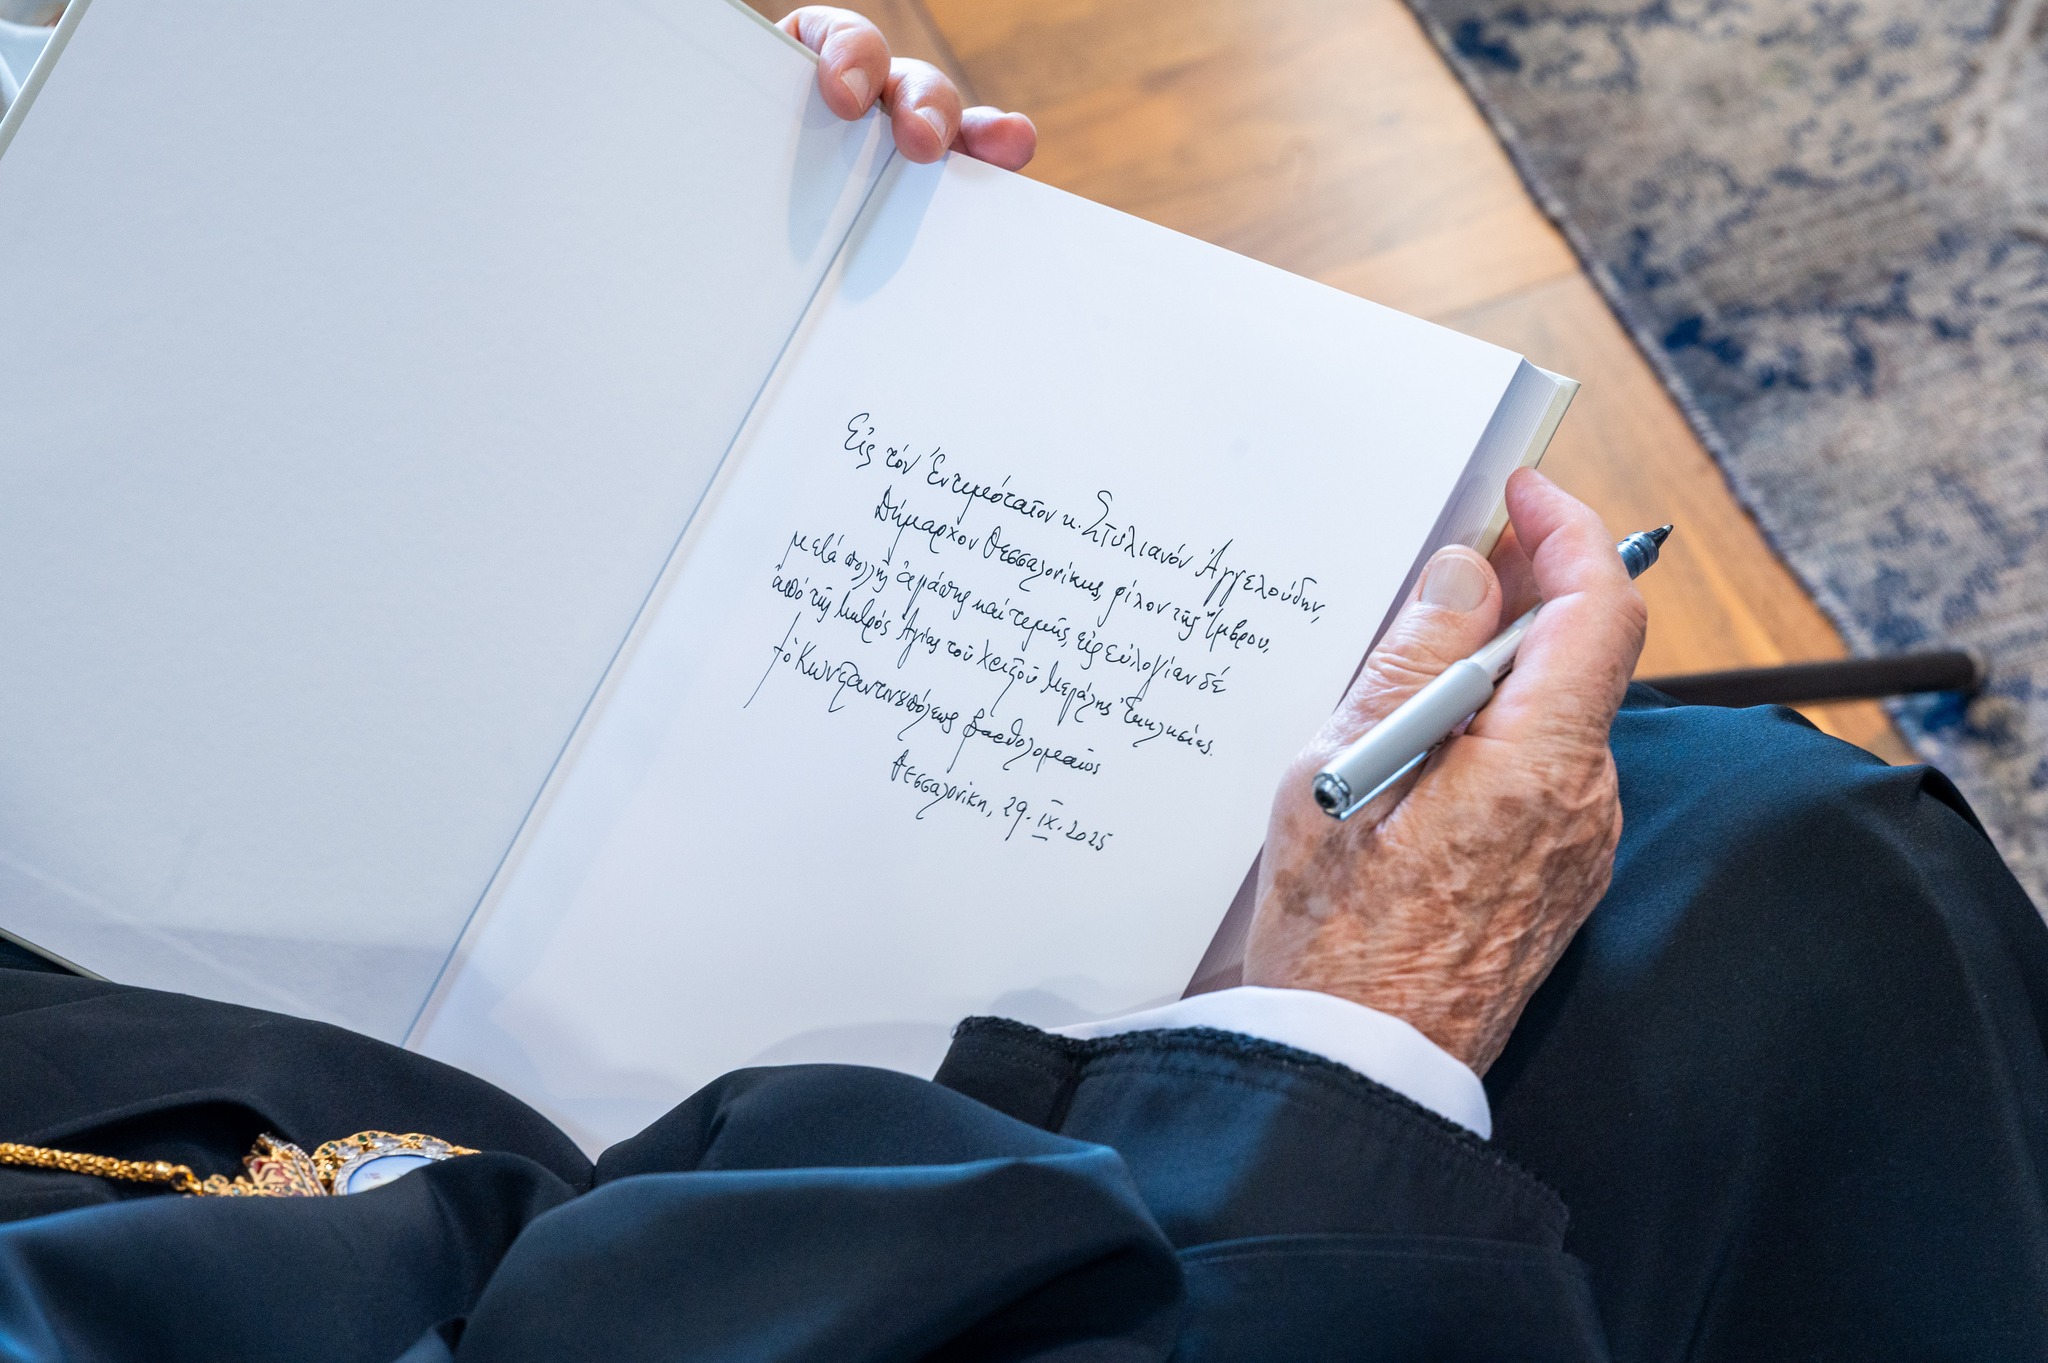 Εἰς τόν Ἐντιμότατον κ. Στυλιανόν Ἀγγελούδην,
Δήμαρχον Θεσσαλονίκης, φίλον τῆς Ἴμβρου,
μετά πολλῆς ἀγάπης καί τιμῆς, εἰς εὐλογίαν δέ
ἀπό τῆς Μητρός Ἁγίας τοῦ Χριστοῦ Μεγάλης Ἐκκλησίας.
† ὁ Κωνσταντινουπόλεως Βαρθολομαῖος
Θεσσαλονίκη, 29.IX.2025